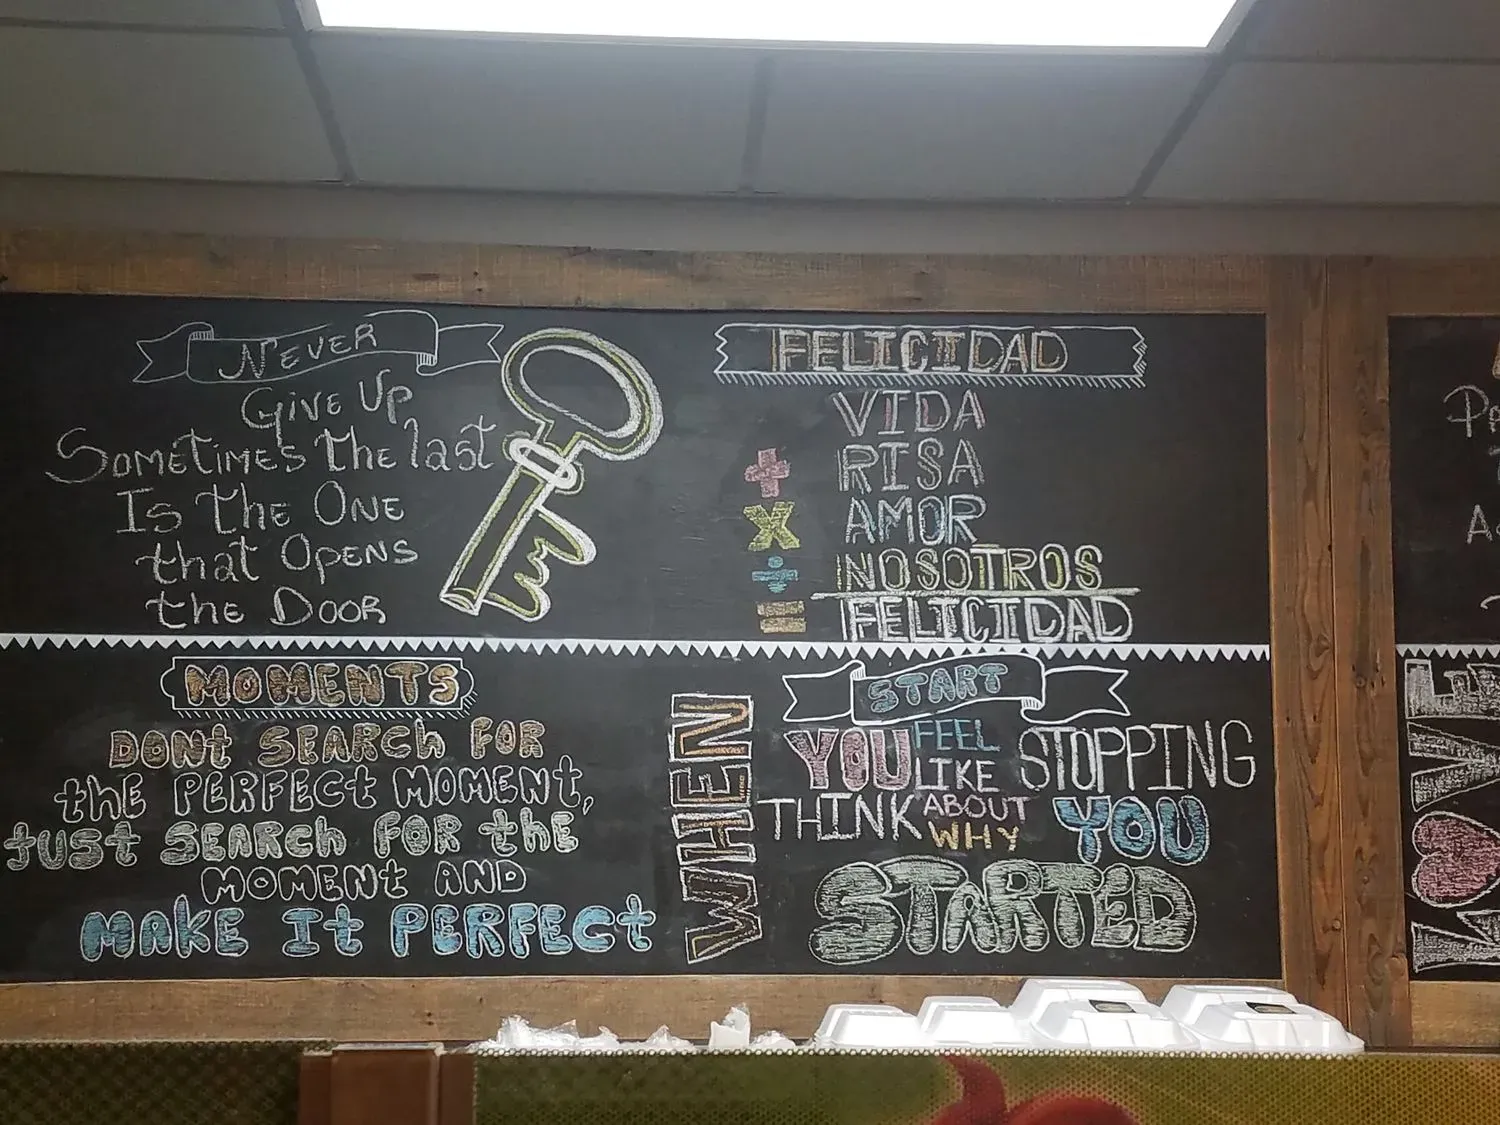 NEVER
GIVE UP
SOMETIMES the last
IS the ONE
that OPENS
the DOOR
FELICIDAD
VIDA
+ RISA
x AMOR
÷ NOSOTROS
= FELICIDAD
MOMENTS
DONt SEARCh FOR
thE PERFECt MOMENt,
JUSt SEARCh FOR thE
MOMENt AND
MAKE It PERFECt
WHEN
START
YOU FEEL LIKE STOPPING
THINK ABOUT WHY YOU
STARTED
LOVE